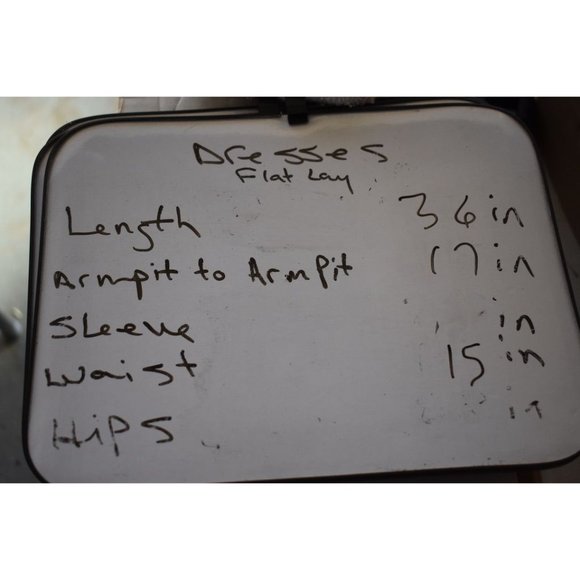 Dresses
Flat Lay
Length 36 in
Armpit to Armpit 17 in
Sleeve in
Waist 15 in
Hips in